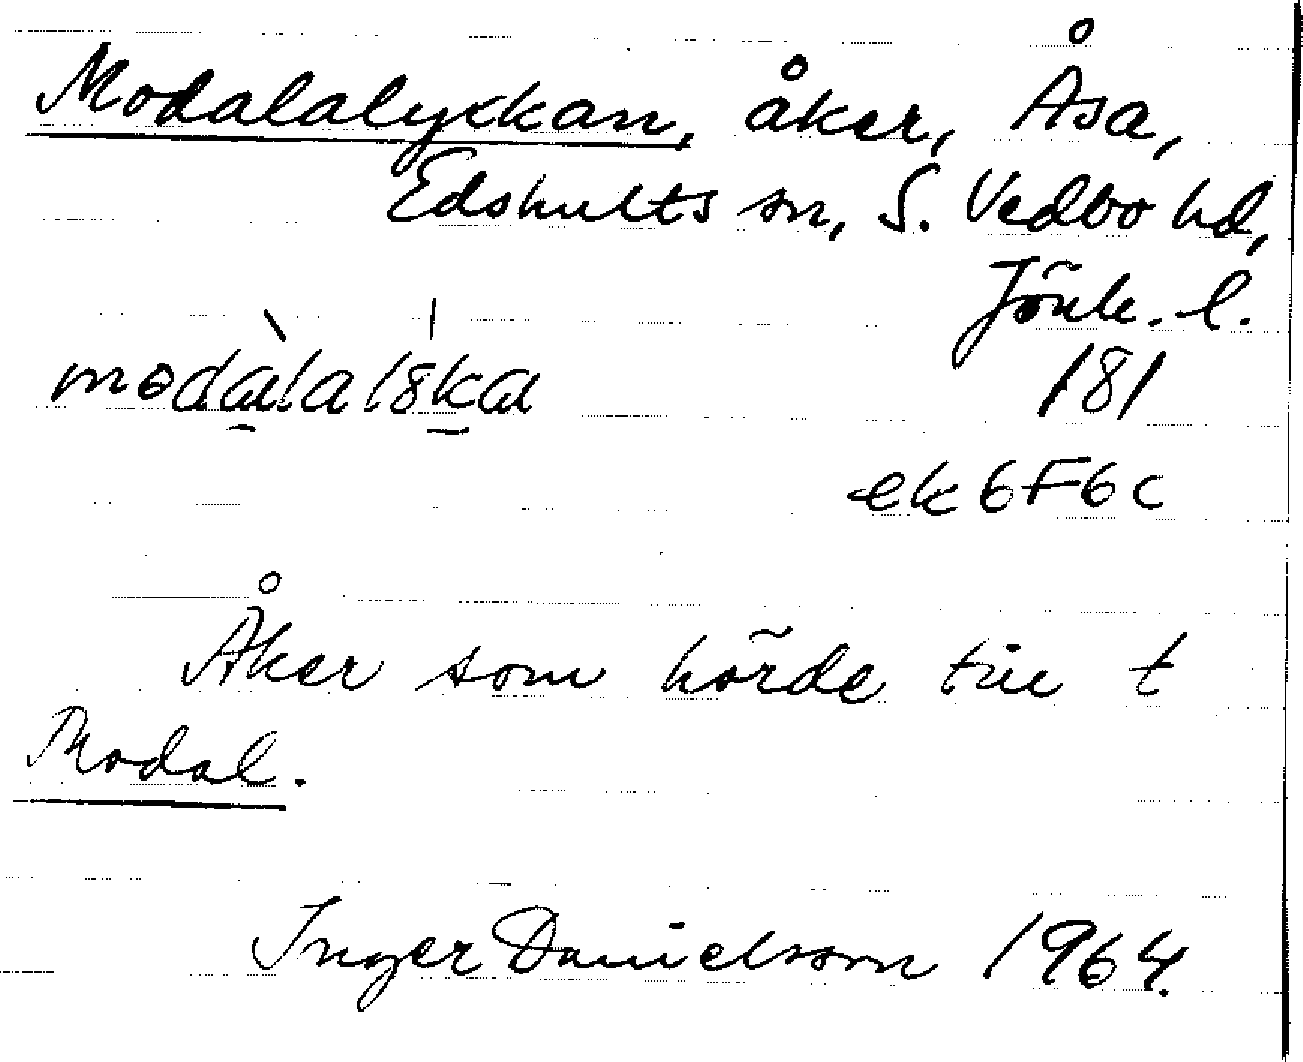 Modalalyckan, åker, Åsa,
Edshults sn, S. Vedbo hd,
Jönk. l.
181
ek 6F6c
Åker som hörde till t
Modal.
Inger Danielsson 1964.